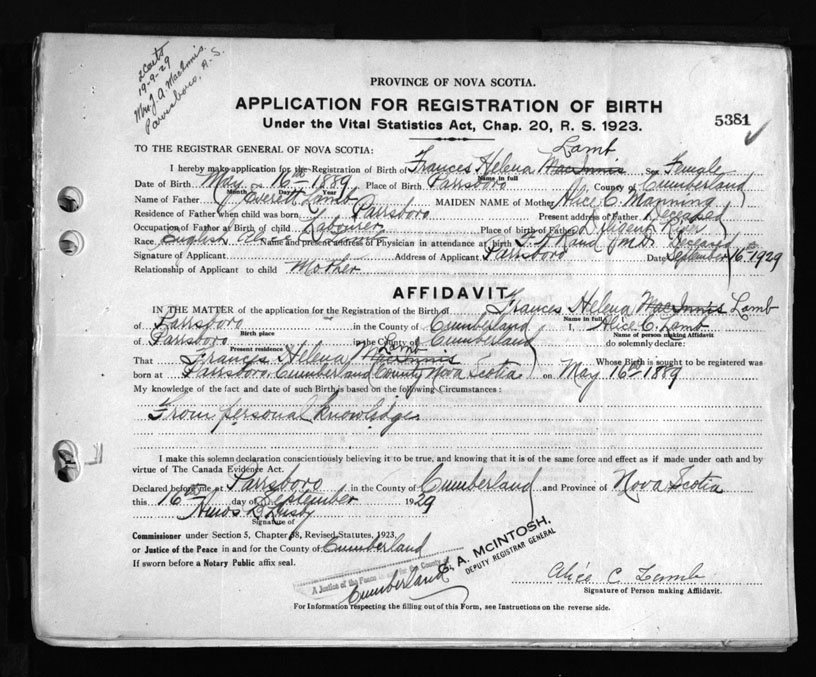 2 Certs
19-9-29
Mrs J. A. MacInnis.
Parrsboro, N.S.
PROVINCE OF NOVA SCOTIA.
APPLICATION FOR REGISTRATION OF BIRTH
5381
Under the Vital Statistics Act, Chap. 20, R. S. 1923.
TO THE REGISTRAR GENERAL OF NOVA SCOTIA:
Lamb
I hereby make application for the Registration of Birth of Frances Helena MacInnis Sex Female
Name in full
Date of Birth May 16th 1889 Place of Birth Parrsboro County of Cumberland
Month Day Year
Name of Father J Everett Lamb MAIDEN NAME of Mother Alice C. Manning
Residence of Father when child was born Parrsboro Present address of Father Deceased
Occupation of Father at Birth of child Labourer Place of birth of Father Diligent River
Race English Name and present address of Physician in attendance at birth Rand M.D. Deceased
Signature of Applicant Address of Applicant Parrsboro Date September 16th 1929
Relationship of Applicant to child Mother
AFFIDAVIT
IN THE MATTER of the application for the Registration of the Birth of Frances Helena MacInnis Lamb
Name in full
of Parrsboro in the County of Cumberland I, Alice C. Lamb
Birth place Name of person making Affidavit
of Parrsboro in the County of Cumberland do solemnly declare:
Present residence
Lamb
That Frances Helena MacInnis Whose Birth is sought to be registered was
born at Parrsboro, Cumberland County Nova Scotia on May 16th 1889
My knowledge of the fact and date of such Birth is based on the following Circumstances:
From personal knowledge
I make this solemn declaration conscientiously believing it to be true, and knowing that it is of the same force and effect as if made under oath and by
virtue of The Canada Evidence Act.
Declared before me at Parrsboro in the County of Cumberland and Province of Nova Scotia
this 16th day of September 1929
Amos B Lusby
Signature of
Commissioner under Section 5, Chapter 38, Revised Statutes, 1923,
or Justice of the Peace in and for the County of Cumberland
If sworn before a Notary Public affix seal.
A Justice of the Peace in and for the County of
Cumberland
A. McINTOSH,
DEPUTY REGISTRAR GENERAL
Alice C Lamb
Signature of Person making Affidavit.
For Information respecting the filling out of this Form, see Instructions on the reverse side.